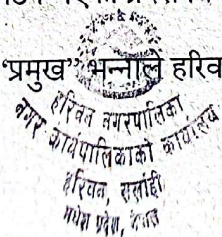 "प्रमुख" भन्नाले हरिव
हरिवन नगरपालिका
नगर कार्यपालिकाको कार्यालय
हरिवन, सर्लाही
मधेश प्रदेश, नेपाल